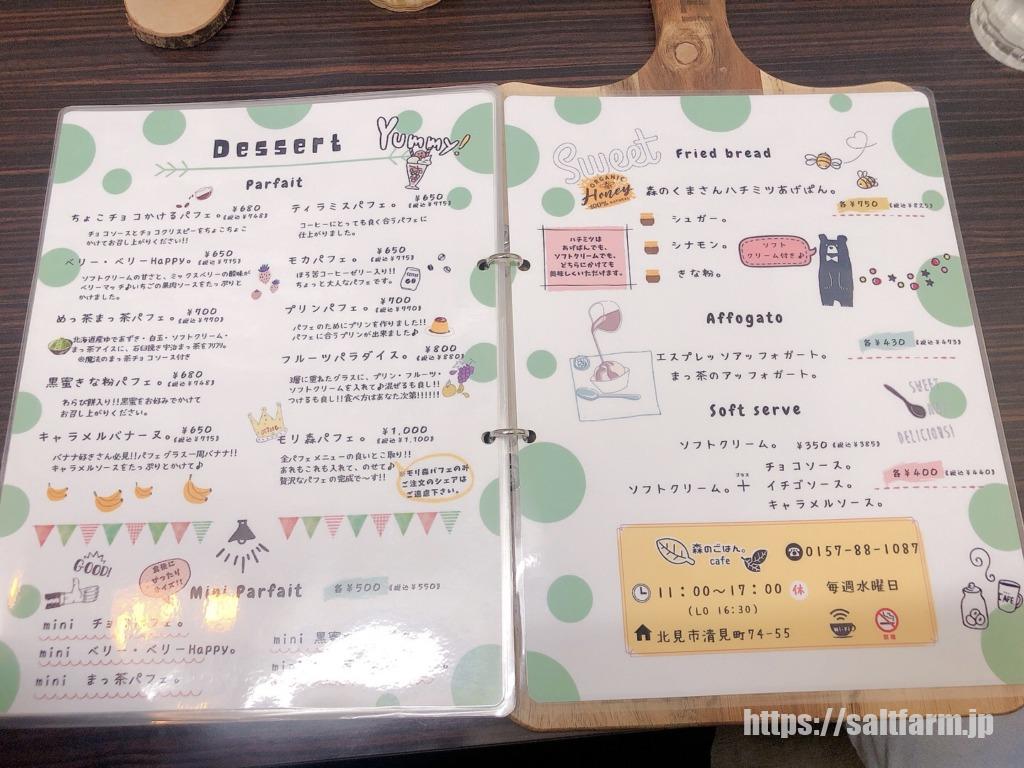 Dessert
Yummy!
Parfait
ちょこチョコかけるパフェ。 ¥680 (税込¥748)
チョコソースとチョコクリスピーをちょこちょこ
かけてお召し上がりください!!
ベリー・ベリーHappy。 ¥650 (税込¥715)
ソフトクリームの甘さと、ミックスベリーの酸味が
ベリーマッチ♪いちごの果肉ソースをたっぷりと
かけました。
めっ茶まっ茶パフェ。 ¥700 (税込¥770)
北海道産ゆであずき・白玉・ソフトクリーム・
まっ茶アイスに、石臼挽き宇治まっ茶をフリフリ。
◎魔法のまっ茶チョコソース付き
黒蜜きな粉パフェ。 ¥680 (税込¥748)
わらび餅入り!!黒蜜をお好みでかけて
お召し上がりください。
キャラメルバナーヌ。 ¥650 (税込¥715)
バナナ好きさん必見!!パフェグラス一周バナナ!!
キャラメルソースをたっぷりとかけて♪
ティラミスパフェ。 ¥650 (税込¥715)
コーヒーにとっても良く合うパフェに
仕上がりました。
モカパフェ。 ¥650 (税込¥715)
ほろ苦コーヒーゼリー入り!!
ちょっと大人なパフェです。
プリンパフェ。 ¥700 (税込¥770)
パフェのためにプリンを作りました!!
パフェに合うプリンが出来ました♪
フルーツパラダイス。 ¥800 (税込¥880)
3層に重ねたグラスに、プリン・フルーツ・
ソフトクリームを入れて♪混ぜるも良し!!
つけるも良し!!食べ方はあなた次第!!!!!!
モリ森パフェ。 ¥1,000 (税込¥1,100)
全パフェメニューの良いとこ取り!!
あれもこれも入れて、のせて♪
贅沢なパフェの完成で〜す!!
※モリ森パフェのみ
ご注文のシェアは
ご遠慮下さい。
GOOD!
食後に
ぴったり
サイズ!!
Mini Parfait 各¥500 (税込¥550)
mini チョコパフェ。
mini ベリー・ベリーHappy。
mini まっ茶パフェ。
mini 黒蜜
mini
Sweet
Fried bread
ORGANIC
Honey
100% NATURAL
森のくまさんハチミツあげぱん。
各¥750 (税込¥825)
シュガー。
シナモン。
きな粉。
ハチミツは
あげぱんでも、
ソフトクリームでも、
どちらにかけても
美味しくいただけます。
ソフト
クリーム付き♪
Affogato
各¥430 (税込¥473)
エスプレッソアッフォガート。
まっ茶のアッフォガート。
SWEET
DELICIOUS!
Soft serve
ソフトクリーム。 ¥350 (税込¥385)
チョコソース。
ソフトクリーム。 プラス + イチゴソース。 各¥400 (税込¥440)
キャラメルソース。
森のごはん。
cafe
0157-88-1087
11:00〜17:00 休 毎週水曜日
(LO 16:30)
Wi-Fi
禁煙
北見市清見町74-55
CAFE
https://saltfarm.jp